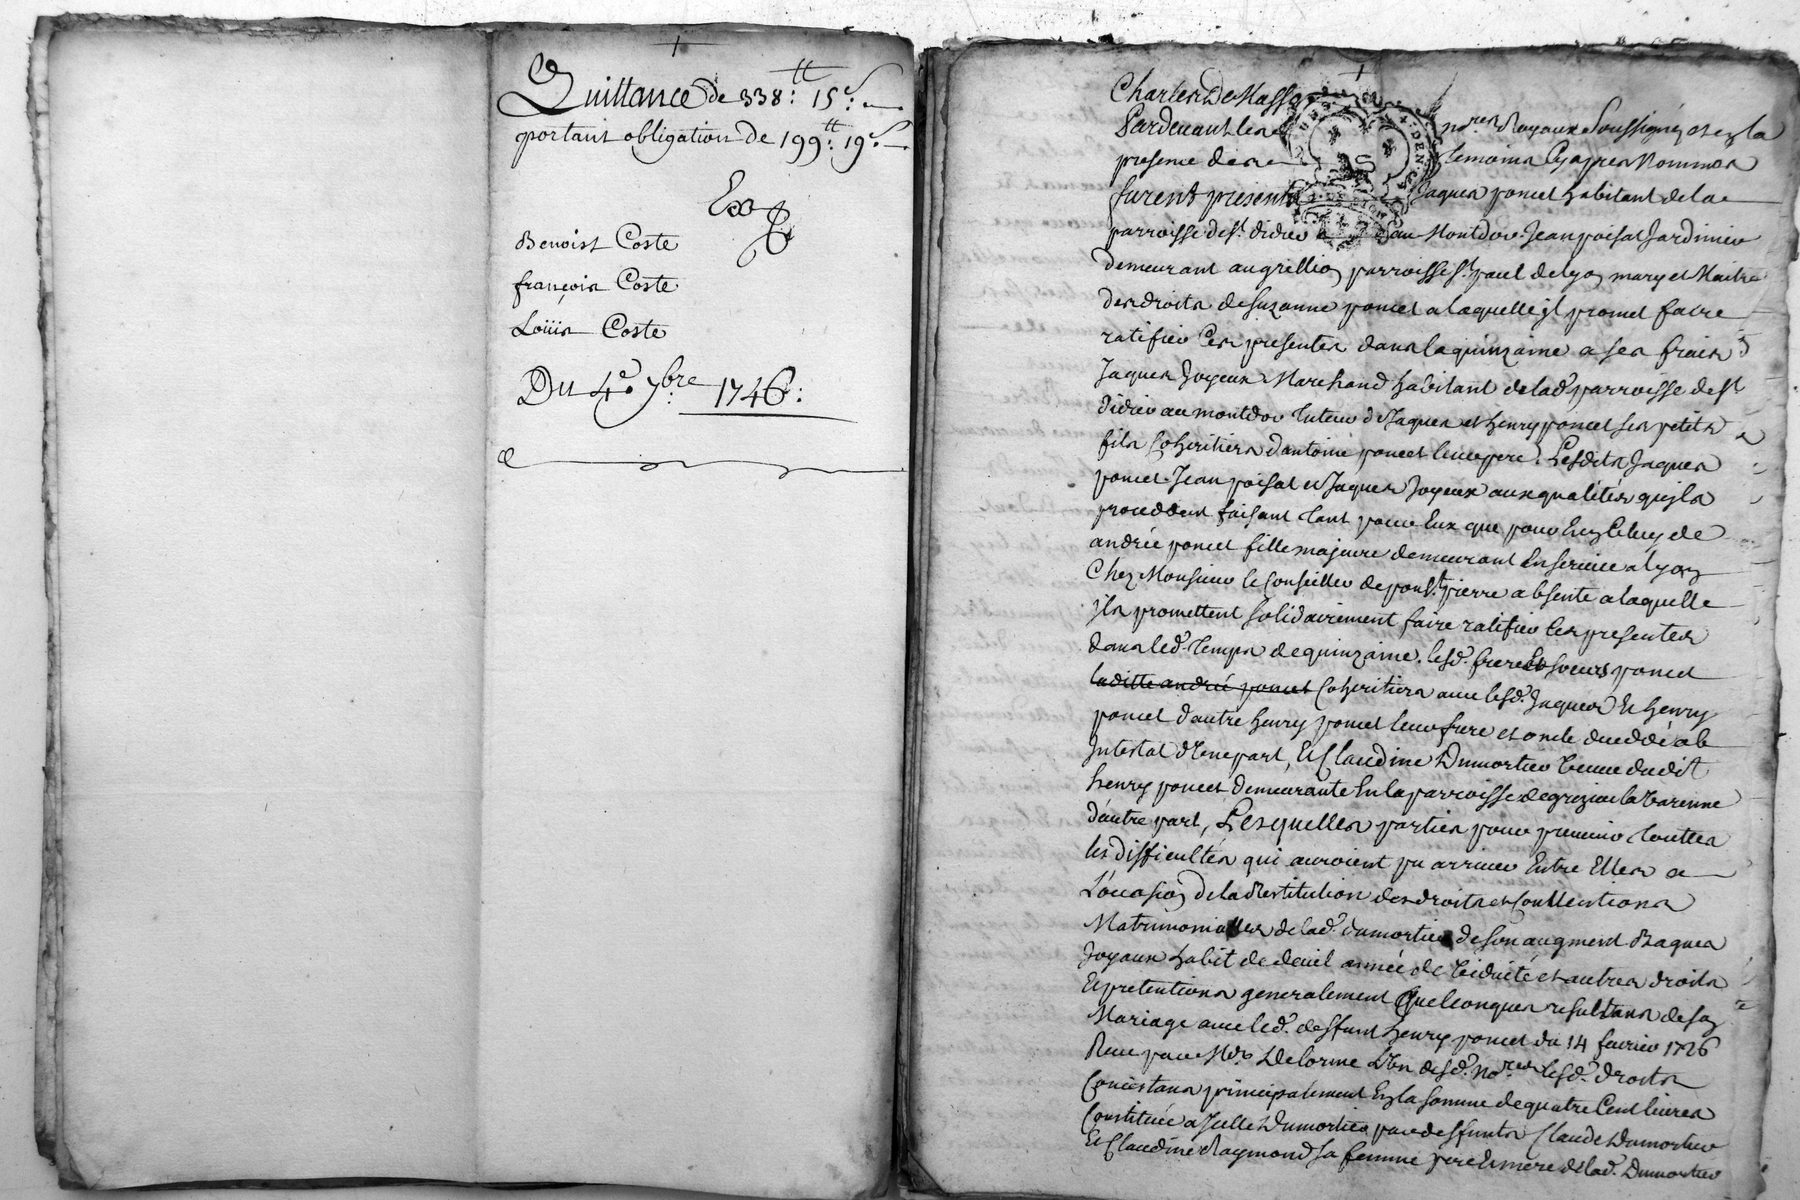 Quittance de 338 tt: 15 s:
portant obligation de 199 tt: 19 s
Exp
Benoist Coste
françois Coste
Loüis Coste
Du 4e. 7bre 1746:
Charles De Masso
Pardevant les no.res Royaux Soussignéz et en la
presence des temoins Cyapres Nommés
furent presents Jaques poncet habitant de la
parroisse de st. didier au Montdor Jean poisat Jardinier
demeurant au grillion parroisse st. paul de Lyon mary et Maitre
des droits de Suzanne poncet a laquelle jl promet faire
ratifier Ces presentes dans la quinzaine a ses frais
Jaques Joyeux Marchand habitant de lad. parroisse de st.
didier au montdor tuteur de Jaques et henry poncet ses petits
fils Coheritiers d'antoine poncet leur pere. Lesdits Jaques
poncet Jean poisat et Jaques Joyeux aux qualités qujls
procedent faisant tant pour Eux que pour En Celuy de
andrée poncet fille majeure demeurant En service a Lyon
Chez Monsieur le Conseiller de pont st. pierre absente a laquelle
jls promettent solidairement faire ratifier les presentes
dans led. temps de quinzaine. lesd. freres Et soeurs poncet
laditte andrée poncet Coheritiers avec lesd. Jaques Et henry
poncet d'autre henry poncet leur frere et oncle decedé ab
Intestat d'Une part, Et Claudine Dumortier Veuve dudit
henry poncet demeurante En la parroisse de grezieu la Varenne
d'autre part, Lesquelles parties pour prevenir touttes
les difficultés qui auroient pu arriver Entre Elles a
L'occasion de la Restitution des droits et Conventions
Matrimonialles de lad. dumortier de son augment Bagues
Joyaux habit de deuil année de Viduité et autres droits
Et pretentions generalement Quelconques resultans de son
Mariage avec led. deffunt henry poncet du 14 fevrier 1726
Recu par Me Delorme L'Un desd. No.res lesd. droits
Consistans principalement En la somme de quatre Cent livres
Constituée a Jcelle Dumortier par deffunts Claude Dumortier
Et Claudine Raymond sa femme pere Et mere de lad. Dumortier